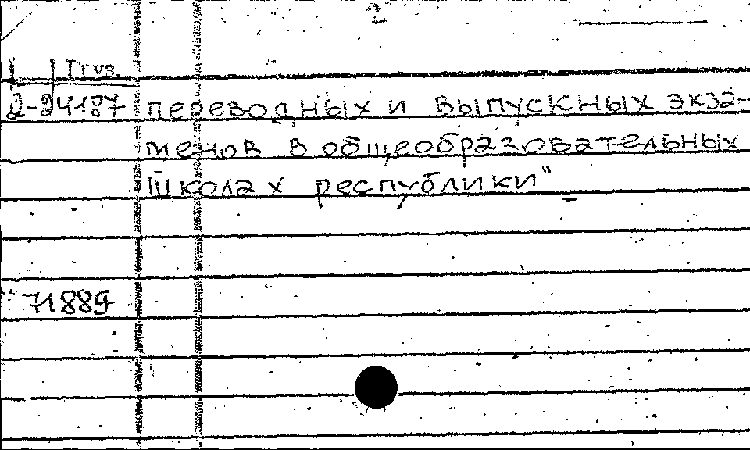 2
Q-94187 переводных и выпускных экза-
менов в общеобразовательных
школах республики"
71889